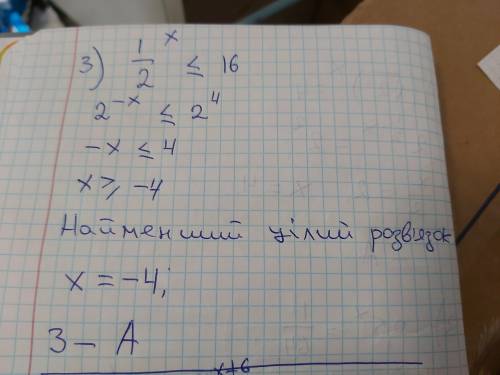 3) 1/2 ^x ≤ 16
2^-x ≤ 2^4
-x ≤ 4
x ≥ -4
Найменший цілий розв'язок
x = -4;
3 - А
x+6